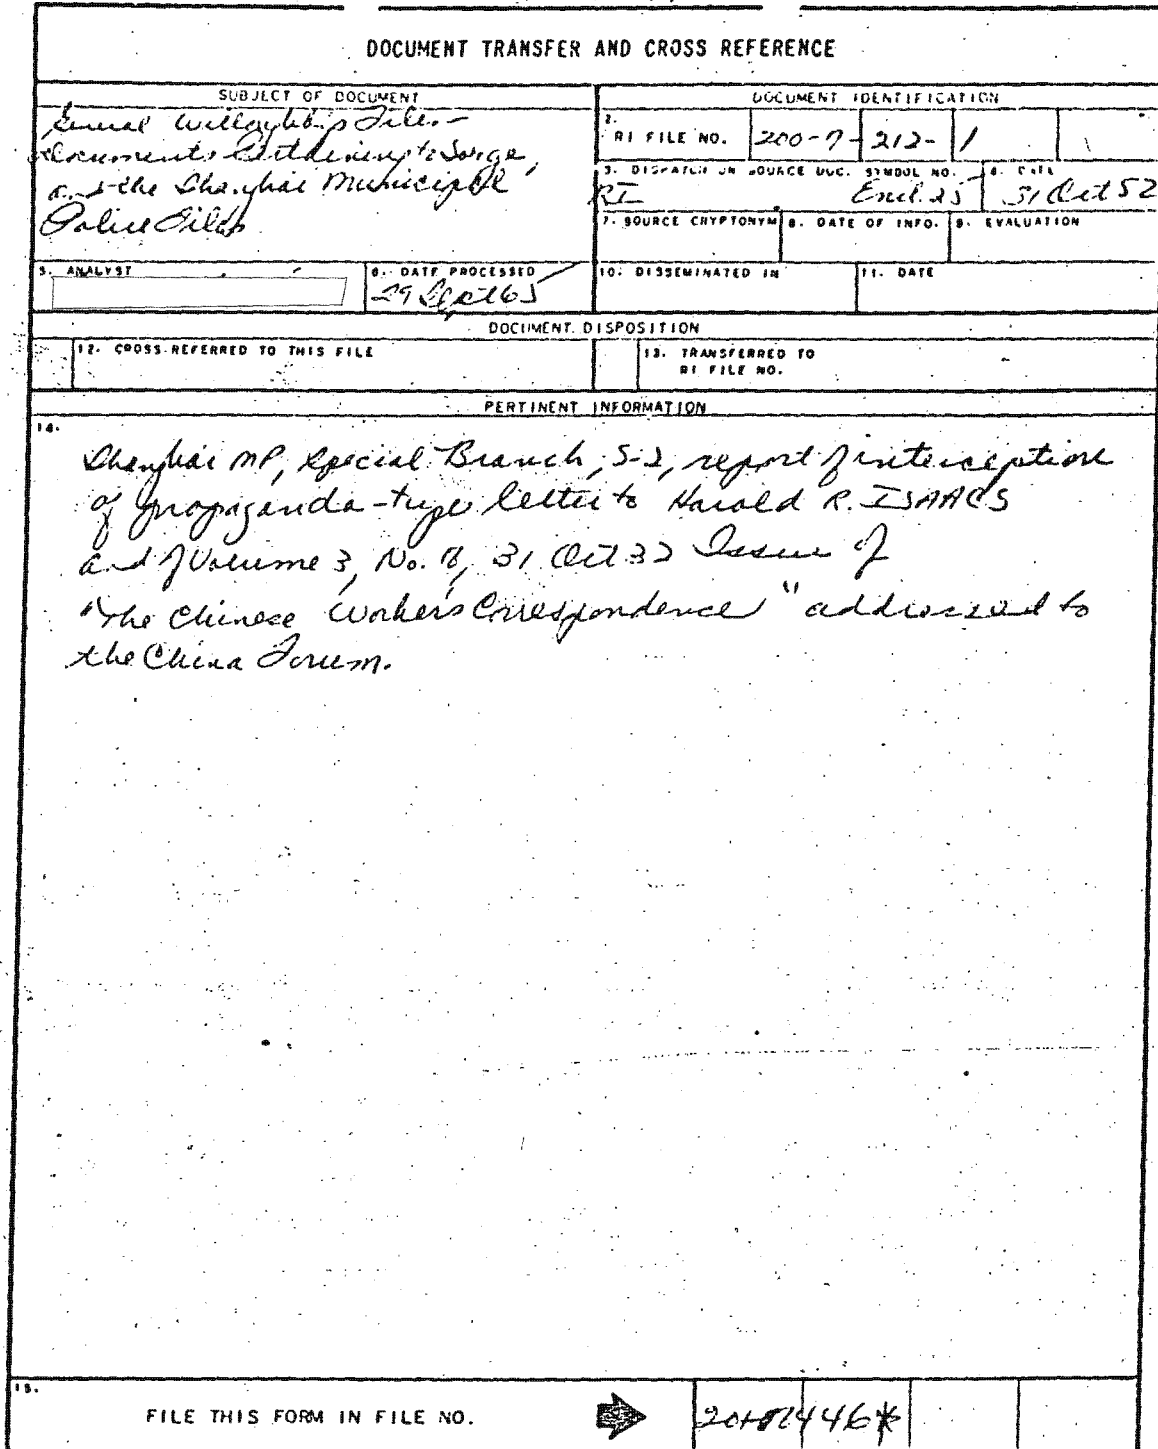 DOCUMENT TRANSFER AND CROSS REFERENCE
SUBJECT OF DOCUMENT
General Willoughby's Files -
Documents Pertaining to Sorge,
and the Shanghai Municipal
Police Files
DOCUMENT IDENTIFICATION
2.
RI FILE NO. 200-7-212-1
3. DISPATCH OR SOURCE DOC. SYMBOL NO.
RI Encl. 25
4. DATE
31 Oct 52
7. SOURCE CRYPTONYM
8. DATE OF INFO.
9. EVALUATION
5. ANALYST
6. DATE PROCESSED
29 Sept 65
10. DISSEMINATED IN
11. DATE
DOCUMENT DISPOSITION
12. CROSS-REFERRED TO THIS FILE
13. TRANSFERRED TO
RI FILE NO.
PERTINENT INFORMATION
14.
Shanghai MP, Special Branch, S-2, report of interception
of propaganda-type letter to Harold R. ISAACS
and of Volume 3, No. 31 Oct 32 Issue of
"The Chinese Workers Correspondence" addressed to
the China Forum.
15.
FILE THIS FORM IN FILE NO.